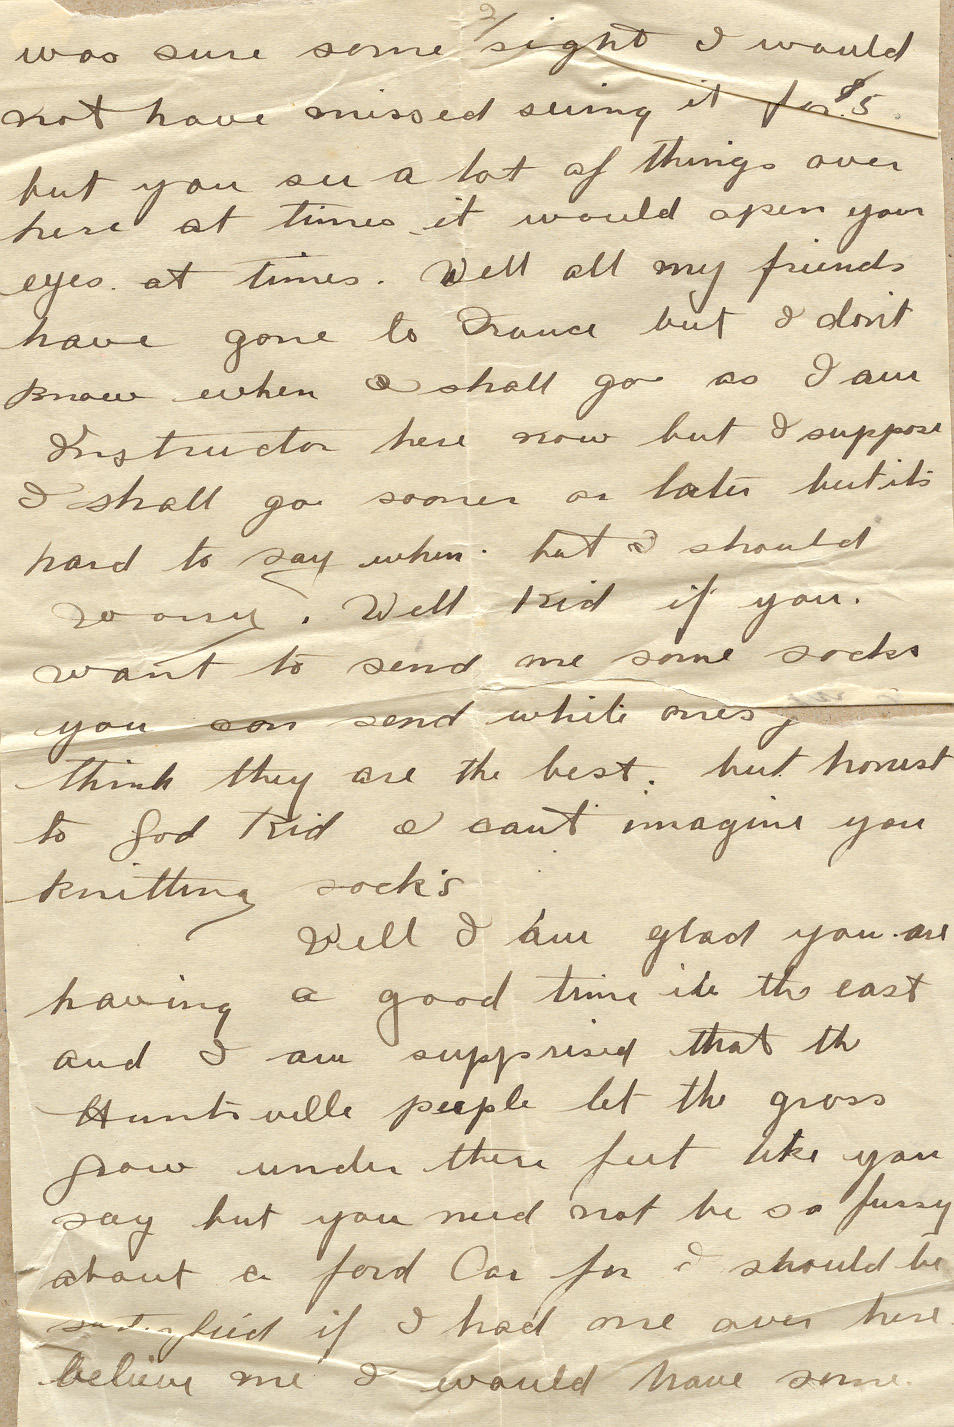 2/
was sure some sight I would
not have missed seeing it for $5.
but you see a lot of things over
here at times it would open your
eyes. at times. Well all my friends
have gone to France but I don't
know when I shall go as I am
Instructor here now but I suppose
I shall go sooner or later but its
hard to say when. but I should
worry. Well Kid if you.
want to send me some socks
you can send white ones
think they are the best. but honest
to God Kid I can't imagine you
knitting sock's
Well I am glad you are
having a good time in the east
and I am supprised that th
Huntsville people let the grass
grow under there feet like you
say but you need not be so fussy
about a ford Car for I should be
satisfied if I had one over here
believe me I would have some